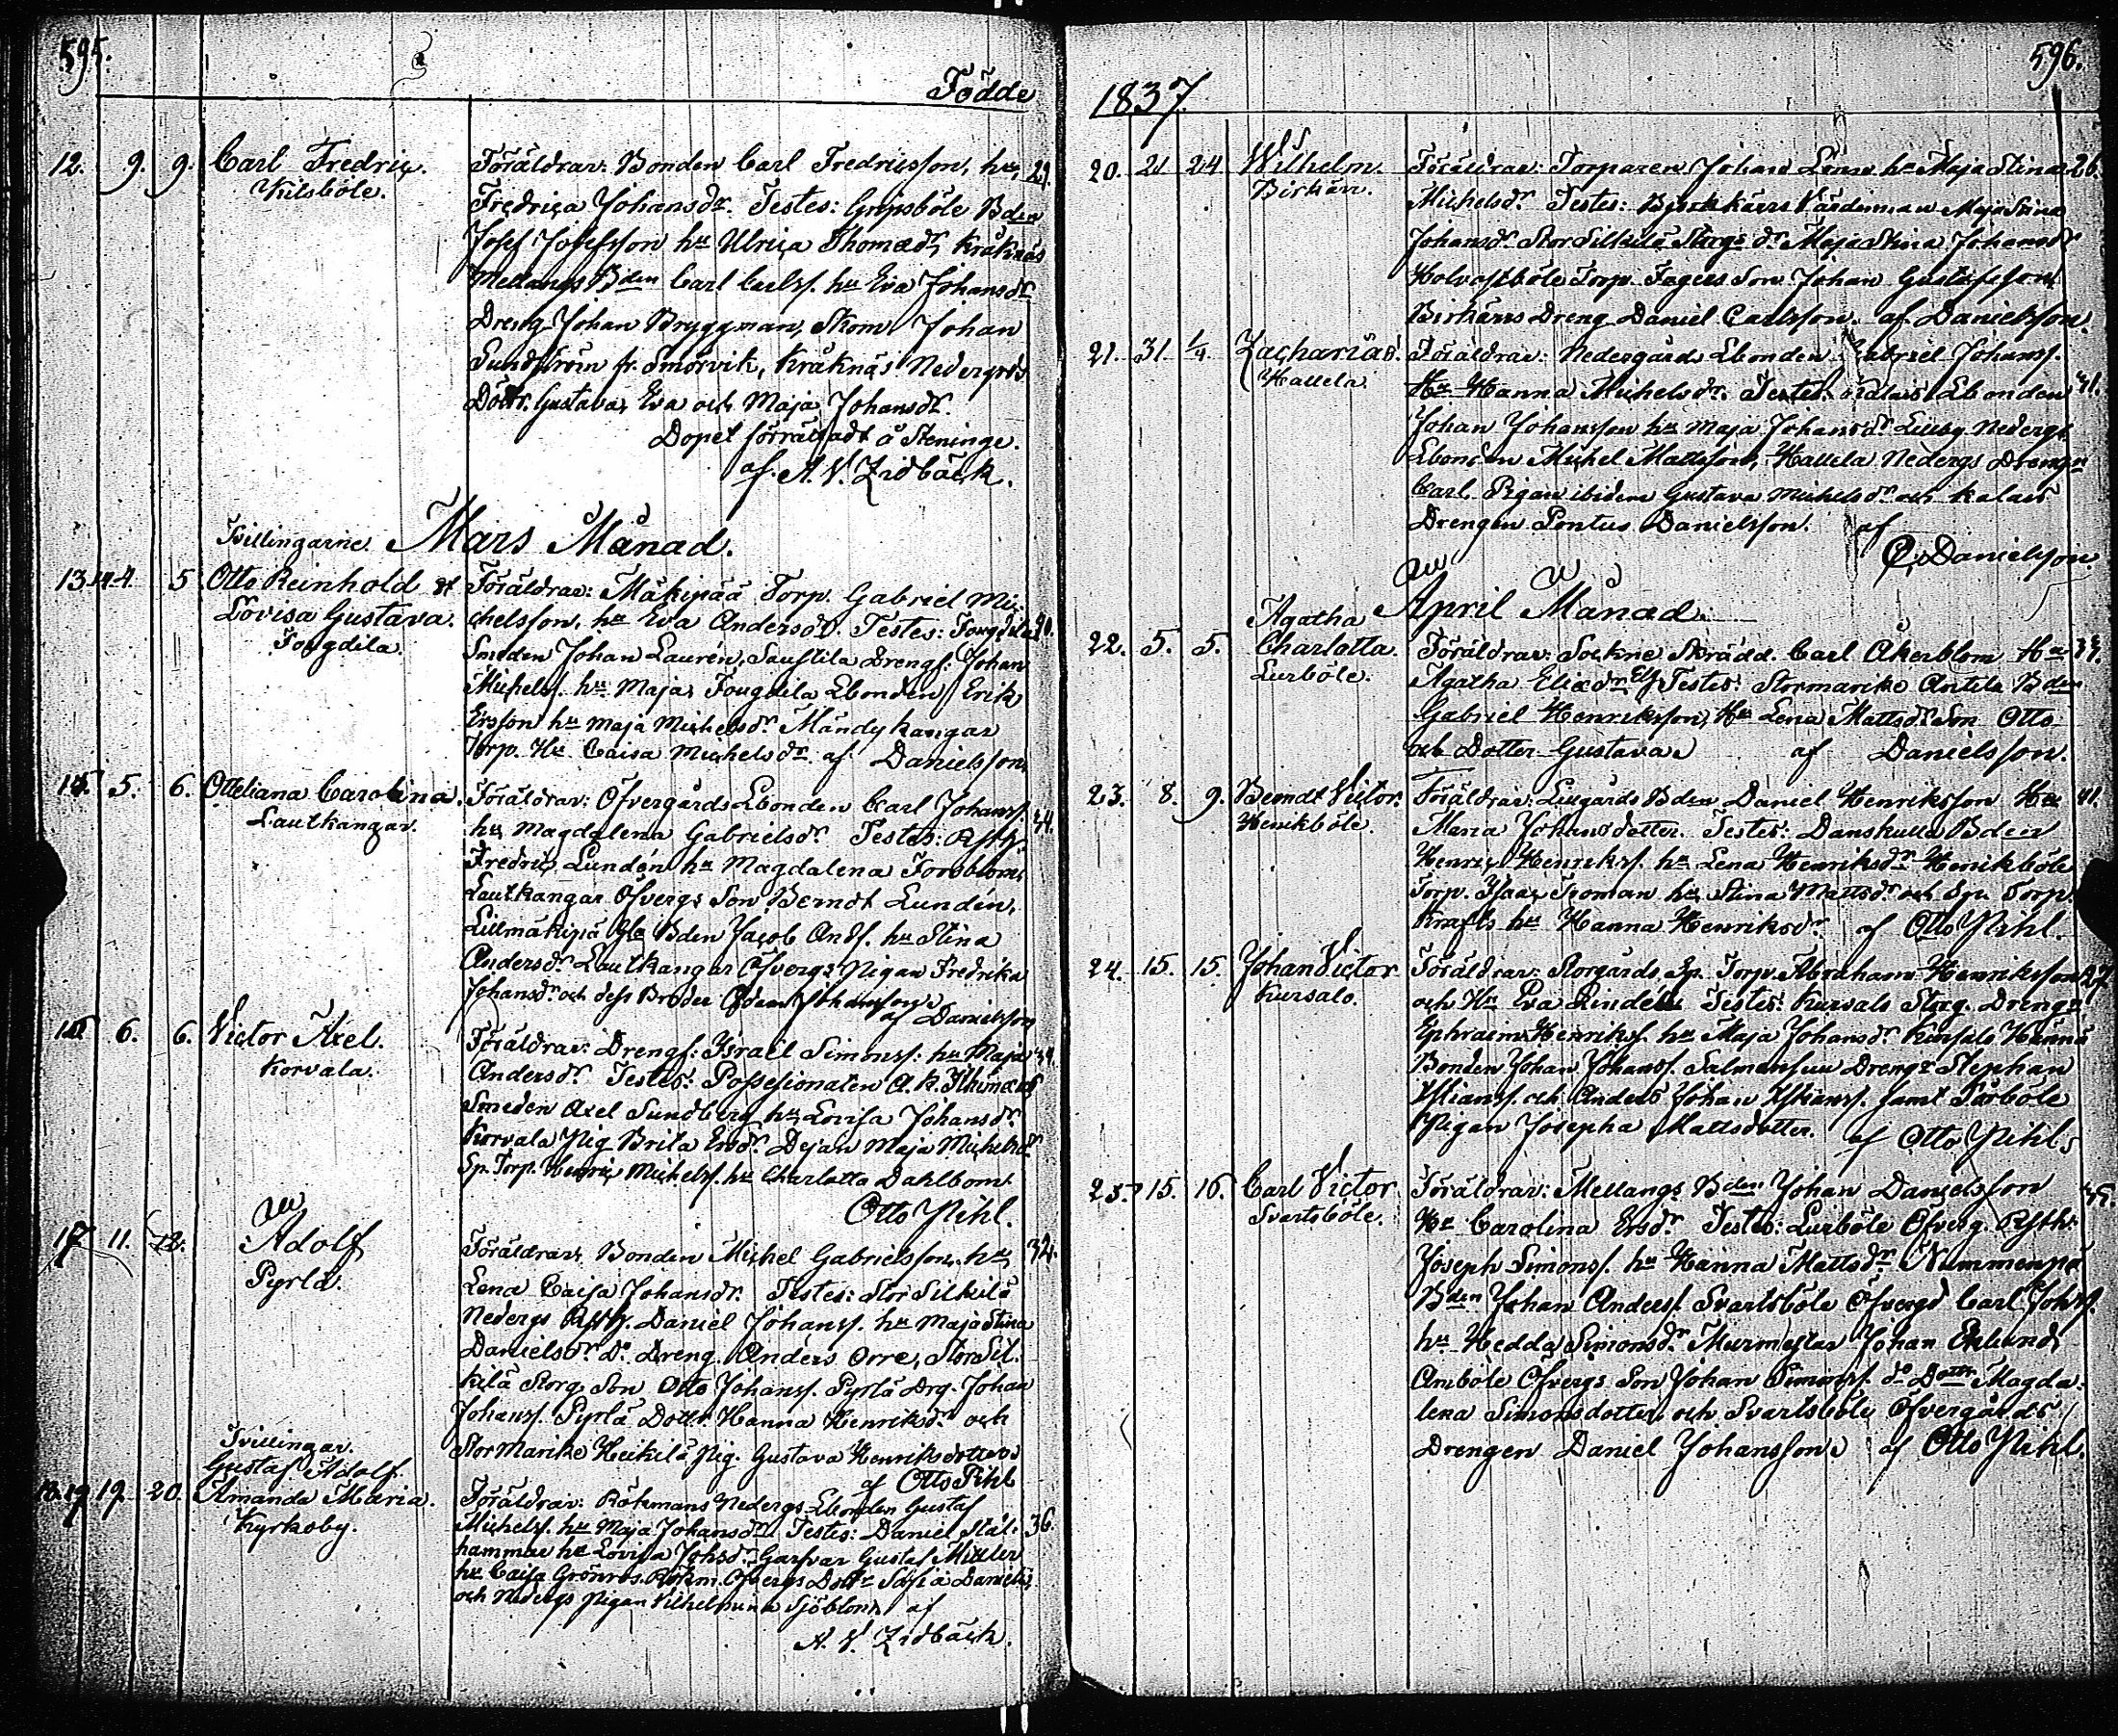 595.
Födde
12. 9. 9. Carl Fredric. Föräldrar: Bonden Carl Fredricsson, hu 29.
Kilsböle. Fredrica Johansdr. Testes: Gropsböle Bden
Josef Josefsson hu Ulrica Thomædr, Kråknäs
Mellangs Bden Carl Carlss. hu Eva Johansdr
Dreng Johan Bryggman, Skom. Johan
Sundström fr. Smörvik, Kråknäs Nedergrds
Döttr. Gustava, Eva och Maja Johansdr.
Dopet förrättadt å Steninge.
af A. V. Zidbäck.
Tvillingarne. Mars Månad.
13.14. 4. 5 Otto Reinhold et Föräldrar: Mäkipää Torp. Gabriel Mi-
Lovisa Gustava. chelsson, hu Eva Andersdr. Testes: Fougdila
Fougdila. Smeden Johan Laurén, Saustila Drengs. Johan
Michelss. hu Maja, Fougdila Lbonden Erik
Ersson hu Maja Michelsdr. Mändykangar
Torp. Hu Caisa Michelsdr. af Danielsson
15. 5. 6. Otteliana Carolina. Föräldrar: Öfvergårds Lbonden Carl Johanss. 44.
Lautkangar. hu Magdalena Gabrielsdr. Testes: Rsth.
Fredric Lundén hu Magdalena Forsblom,
Lautkangar Öfvergs Son Berndt Lundén,
Lillmäkipä Bden Jacob Ands. hu Stina
Andersdr. Lautkangar Öfvergs Pigan Fredrika
Johansdr. och dess Broder Johansson
af Danielsson
16. 6. 6. Victor Axel. Föräldrar: Drengs: Israel Simonss: hu Maja 34.
Korvala. Andersdr. Testes: Possesionaten A. K.
Smeden Axel Sundberg hu Lovisa Johansdr.
Korvala Pig. Brita Ersdr. Dejan Maja Michelsdr.
Sp. Torp. Henric Michelss. hu Charlotta Dahlbom.
Otto Pihl.
17 11. 12. Adolf Föräldrar: Bonden Michel Gabrielsson, hu 32.
Pyrlä. Lena Caisa Johansdr. Testes: Stor Silkilä
Nedergs Rsth. Daniel Johanss. hu Maja Stina
Danielsdr. Do. Dreng. Anders Orre, Stor Sil-
kilä Storg. Son Otto Johanss. Pyrlä Drg. Johan
Johanss. Pyrlä Dottr. Hanna Henriksdr. och
Stor Marike Heikilä Pig. Gustava Henriksdotter
af Otto Pihl
Tvillingar.
Gustaf Adolf
18.19 19. 20. Amanda Maria. Föräldrar: Rökmans Nedergs Lbonden Gustaf
Kyrkoby. Michelss. hu Maja Johansdr. Testes: Daniel Stål- 36.
hammar hu Lovisa Johsdr. Garfvar Gustaf Miller
hu Caisa Grönros. Rökm. Öfvergs Dottr Sofia Daniels.
och Nedergs Pigan Vilhelmina Sjöblom. af
A. V. Zidbäck.
596.
1837
20. 21 24 Wilhelm. Föräldrar: Torparen Johan hu Maja Stina 26.
Birkärr. Michelsdr. Testes: Maja Stina
Johansdr. Stor Silkilä Storgs dr. Maja Stina Johansdr
Holvastböle Torp. Fagers Son Johan Gustafsson
Birkärrs Dreng Daniel Carlsson. af Danielsson.
21. 31. 1/4. Zacharias. Föräldrar: Nedergårds Lbonden Gabriel Johanss.
Hallela. Hu Hanna Michelsdr. Testes: Lbonden 41.
Johan Johansson hu Maja Johansdr. Lillby Nedergs
Lbonden Michel Mattsson, Hallela Nedergs Drengn
Carl. Pigan ibidem Gustava Michelsdr. och Kalais
Drengen Pontus Danielsson. af
Danielsson.
April Månad.
Agatha
22. 5. 5. Charlotta. Föräldrar: Sockne Skrädd. Carl Åkerblom Hu 37.
Lurböle. Agatha Eliædr. Testes: Stormarike Antila Bden
Gabriel Henriksson, Hu Lena Mattsdr. Son Otto
och Dotter Gustava af Danielsson.
23. 8. 9. Berndt Victor. Föräldrar: Lillgårds Bden Daniel Henriksson Hu 41.
Henikböle. Maria Johansdotter. Testes: Danskulla Bden
Henric Henrikss. hu Lena Henriksdr. Henikböle
Torp. Isaac hu Stina Mattsdr. och Sp. Torp.
Krafts hu Hanna Henriksdr. af Otto Pihl.
24. 15. 15. Johan Victor Föräldrar: Storgårds Sp. Torp. Abraham Henriksson 27
Kursalo. och Hu Eva Lindén Testes: Kursalo Storg. Drengs
Ephraim Henrikss. hu Maja Johansdr. Kursalo Hännä
Bonden Johan Johanss. Salmensuu Drengs Stephan
och Anders Johan samt Pärböle
Pigan Josepha Mattsdotter. af Otto Pihl.
25. 15. 16. Carl Victor Föräldrar: Mellangs Bden Johan Danielsson 45.
Svartsböle. Hu Carolina Ersdr. Testes: Lurböle Öfverg. Rsth.
Joseph Simonss. hu Hanna Mattsdr. Nummenpä
Bden Johan Anderss. Svartsböle Öfvergs Carl Johss.
hu Hedda Simonsdr. Murmestar Johan Eklund,
Amböle Öfvergs Son Johan Simonss. do Dottr Magda-
lena Simonsdotter och Svartsböle Öfvergårds
Drengen Daniel Johansson af Otto Pihl.